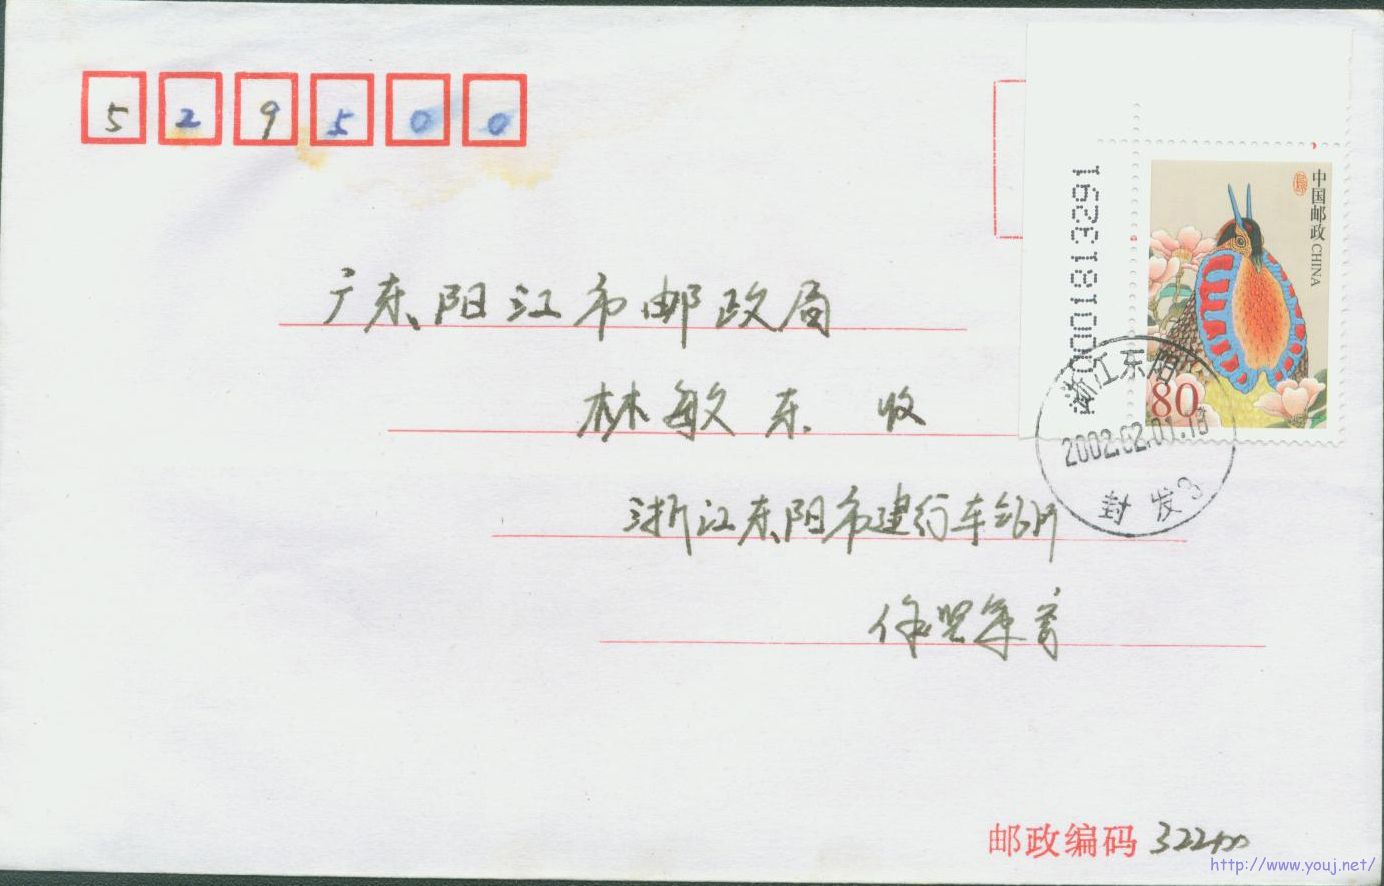 529500
中国邮政 CHINA
80
1623181000
浙江东阳
2002.02.01.18
封发3
广东阳江市邮政局
林敏东 收
浙江东阳市建行车站所
邮政编码 322100
http://www.youj.net/